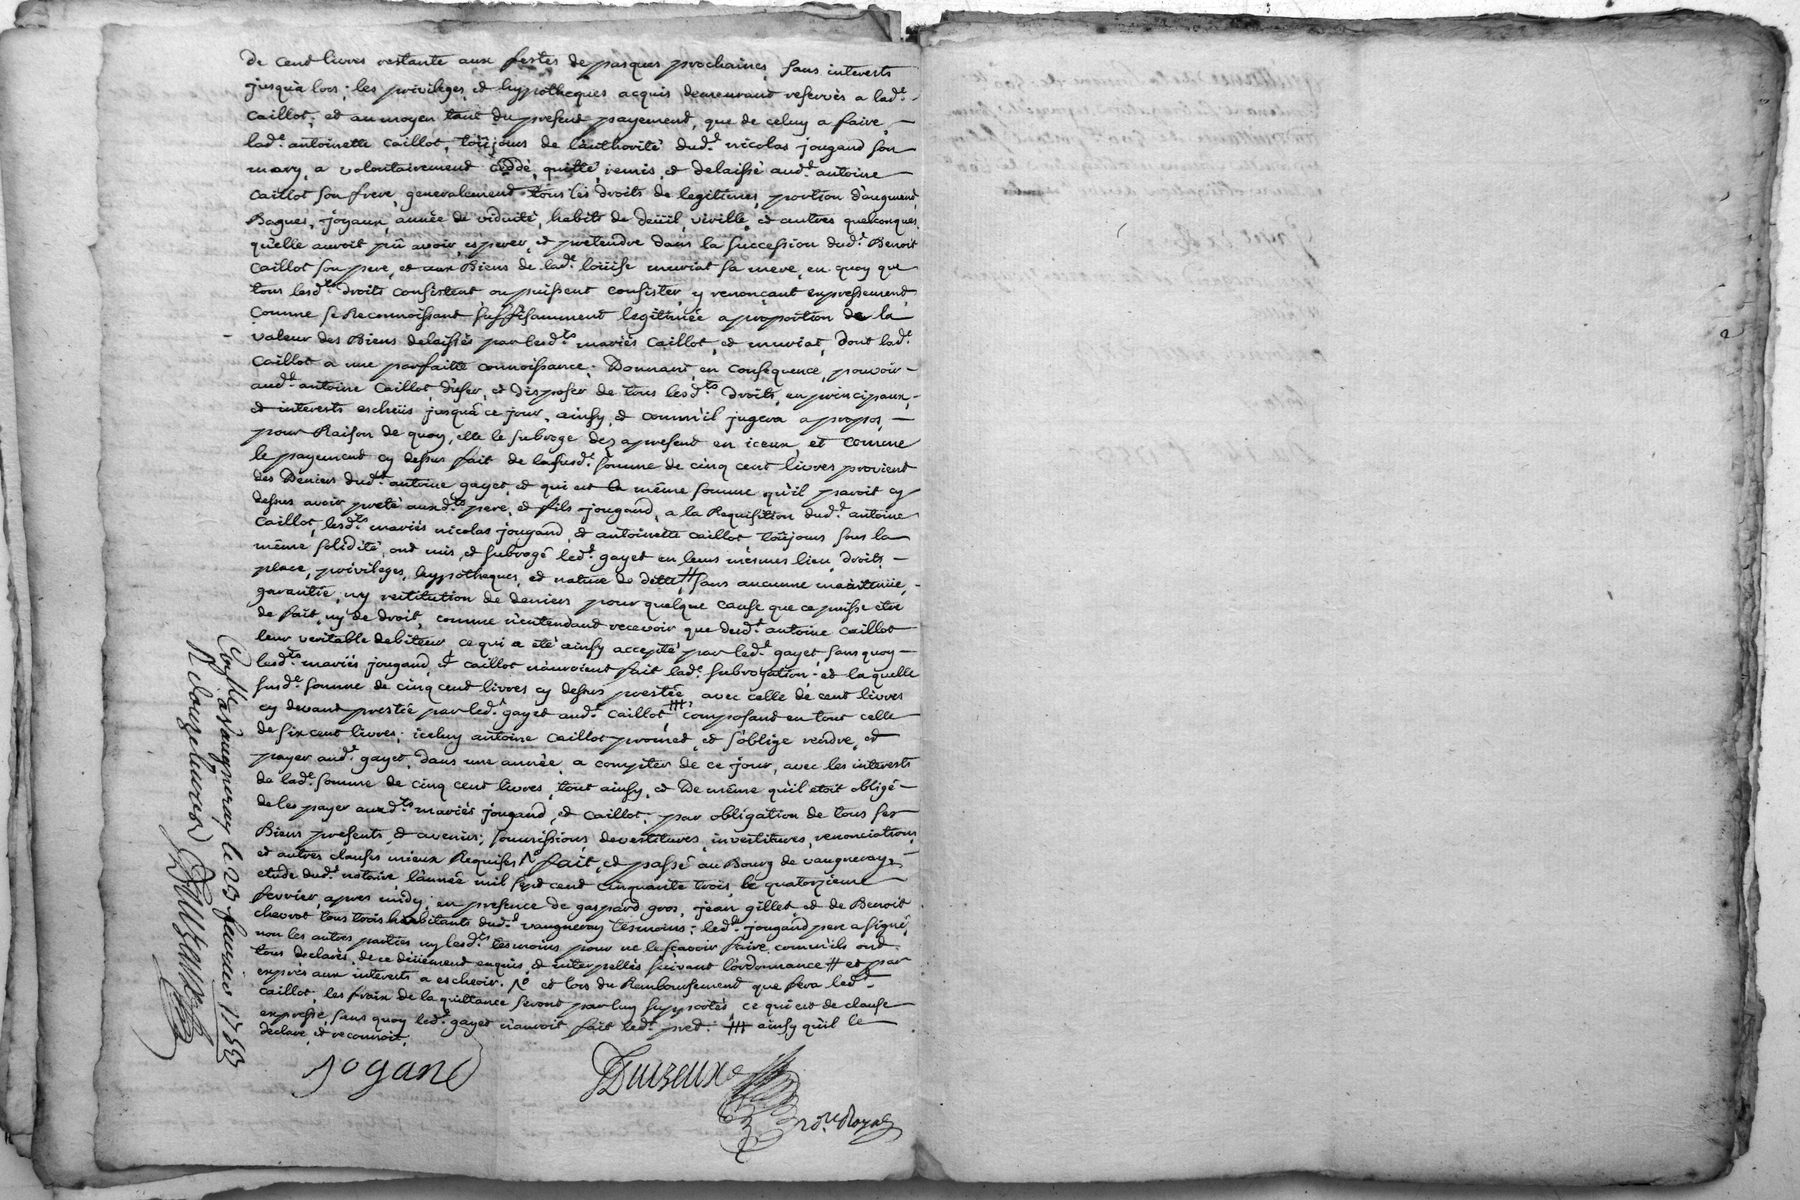 de cent livres restante aux festes de pasques prochaines, sans interests
jusqu'a lors; les privileges, et hypotheques acquis demeurant reservés a lad.e
Caillot; et au moyen tant du present payement, que de celuy a faire,
lad.e antoinette Caillot, toûjours de l'authorité dud.t nicolas jougand son
mary, a volontairement cèddé, quitté, remis, et delaissé aud.t antoine
Caillot son frere, generalement tous les droits de legitimes, portion d'augment,
Bagues, joyaux, année de viduité, habits de deüil, virille, et autres quelconques
qu'elle auroit pû avoir, esperer, et pretendre dans la succession dud.t Benoit
Caillot son pere, et aux Biens de lad.e loüise muriat sa mere, en quoy que
tous lesd.ts droits consistent, ou puissent consister, y renonçant expressement,
Comme se Reconnoissant suffisamment legitimée a proportion de la
valeur des Biens delaissés par lesd.ts mariés Caillot, et muriat, dont lad.e
Caillot a une parfaitte connoissance; Donnant, en consequence, pouvoir
aud.t antoine Caillot, d'user, et disposer de tous lesd.ts droits, en principaux,
et interests escheüs jusqu'a ce jour, ainsy, et comm'il jugera a propos,
pour Raison de quoy, elle le subroge des apresent en iceux, et comme
le payement cy dessus fait de la susd.e somme de cinq cent livres provient
des Deniers dud.t antoine gayet, et qui est la même somme qu'il paroit cy
dessus avoir preté auxd.ts pere, et fils jougand, a la Requisition dud.t antoine
Caillot, lesd.ts mariés nicolas jougand, et antoinette caillot toûjours sous la
même solidité, ont mis, et subrogé led.t gayet en leurs mêmes lieu, droits,
place, privileges, hypotheques, et nature de dette, # sans aucunne maintenüe,
garantie, ny restitution de deniers pour quelque cause que ce puisse etre
de fait, ny de droit, comme n'entendant recevoir que dud.t antoine Caillot
leur veritable debiteur, ce qui a eté ainsy accepté par led.t gayet, sans quoy
lesd.ts mariés jougand, et caillot n'auroient fait lad.e subrogation; et laquelle
susd.e somme de cinq cent livres cy dessus prestée, avec celle de cent livres
cy devant prestée par led.t gayet aud.t Caillot, composant en tout celle
de six cent livres; iceluy antoine Caillot promet, et s'oblige rendre, et
payer aud.t gayet, dans une année, a compter de ce jour, avec les interests
de lad.e somme de cinq cent livres, tout ainsy, et De même qu'il etoit obligé
de les payer auxd.ts mariés jougand, et caillot; par obligation de tous ses
Biens presents, et avenirs; soumissions, devestitures, investitures, renonciations,
et autres clauses mieux Requises. fait, et passé au Bourg de vaugneray,
etude dud.t notaire l'année mil sept cent cinquante trois, le quatorzieme
fevrier, apres midy; en presence de gaspard gros, jean gillet, et de Benoit
chevrot tous trois habitants dud.t vaugneray tesmoins; led.t jougand pere a signé,
non les autres parties ny lesd.ts tesmoins pour ne le sçavoir faire comm'ils ont
tous declarés, de ce düement enquis, et interpellés suivant l'ordonnance # et par
exprés aux interests a escheoir. et lors du Remboursement que fera led.t
Caillot, les fraix de la quittance seront par luy supportés, ce qui est de clause
expresse, sans quoy led.t gayet n'auroit fait led.t pret. ainsy qu'il le
declare, et reconnoit.
jogand
Duizeux
no.re Royal
Con.lé a vaugneray le 23 feuvrier 1753
R douze livres